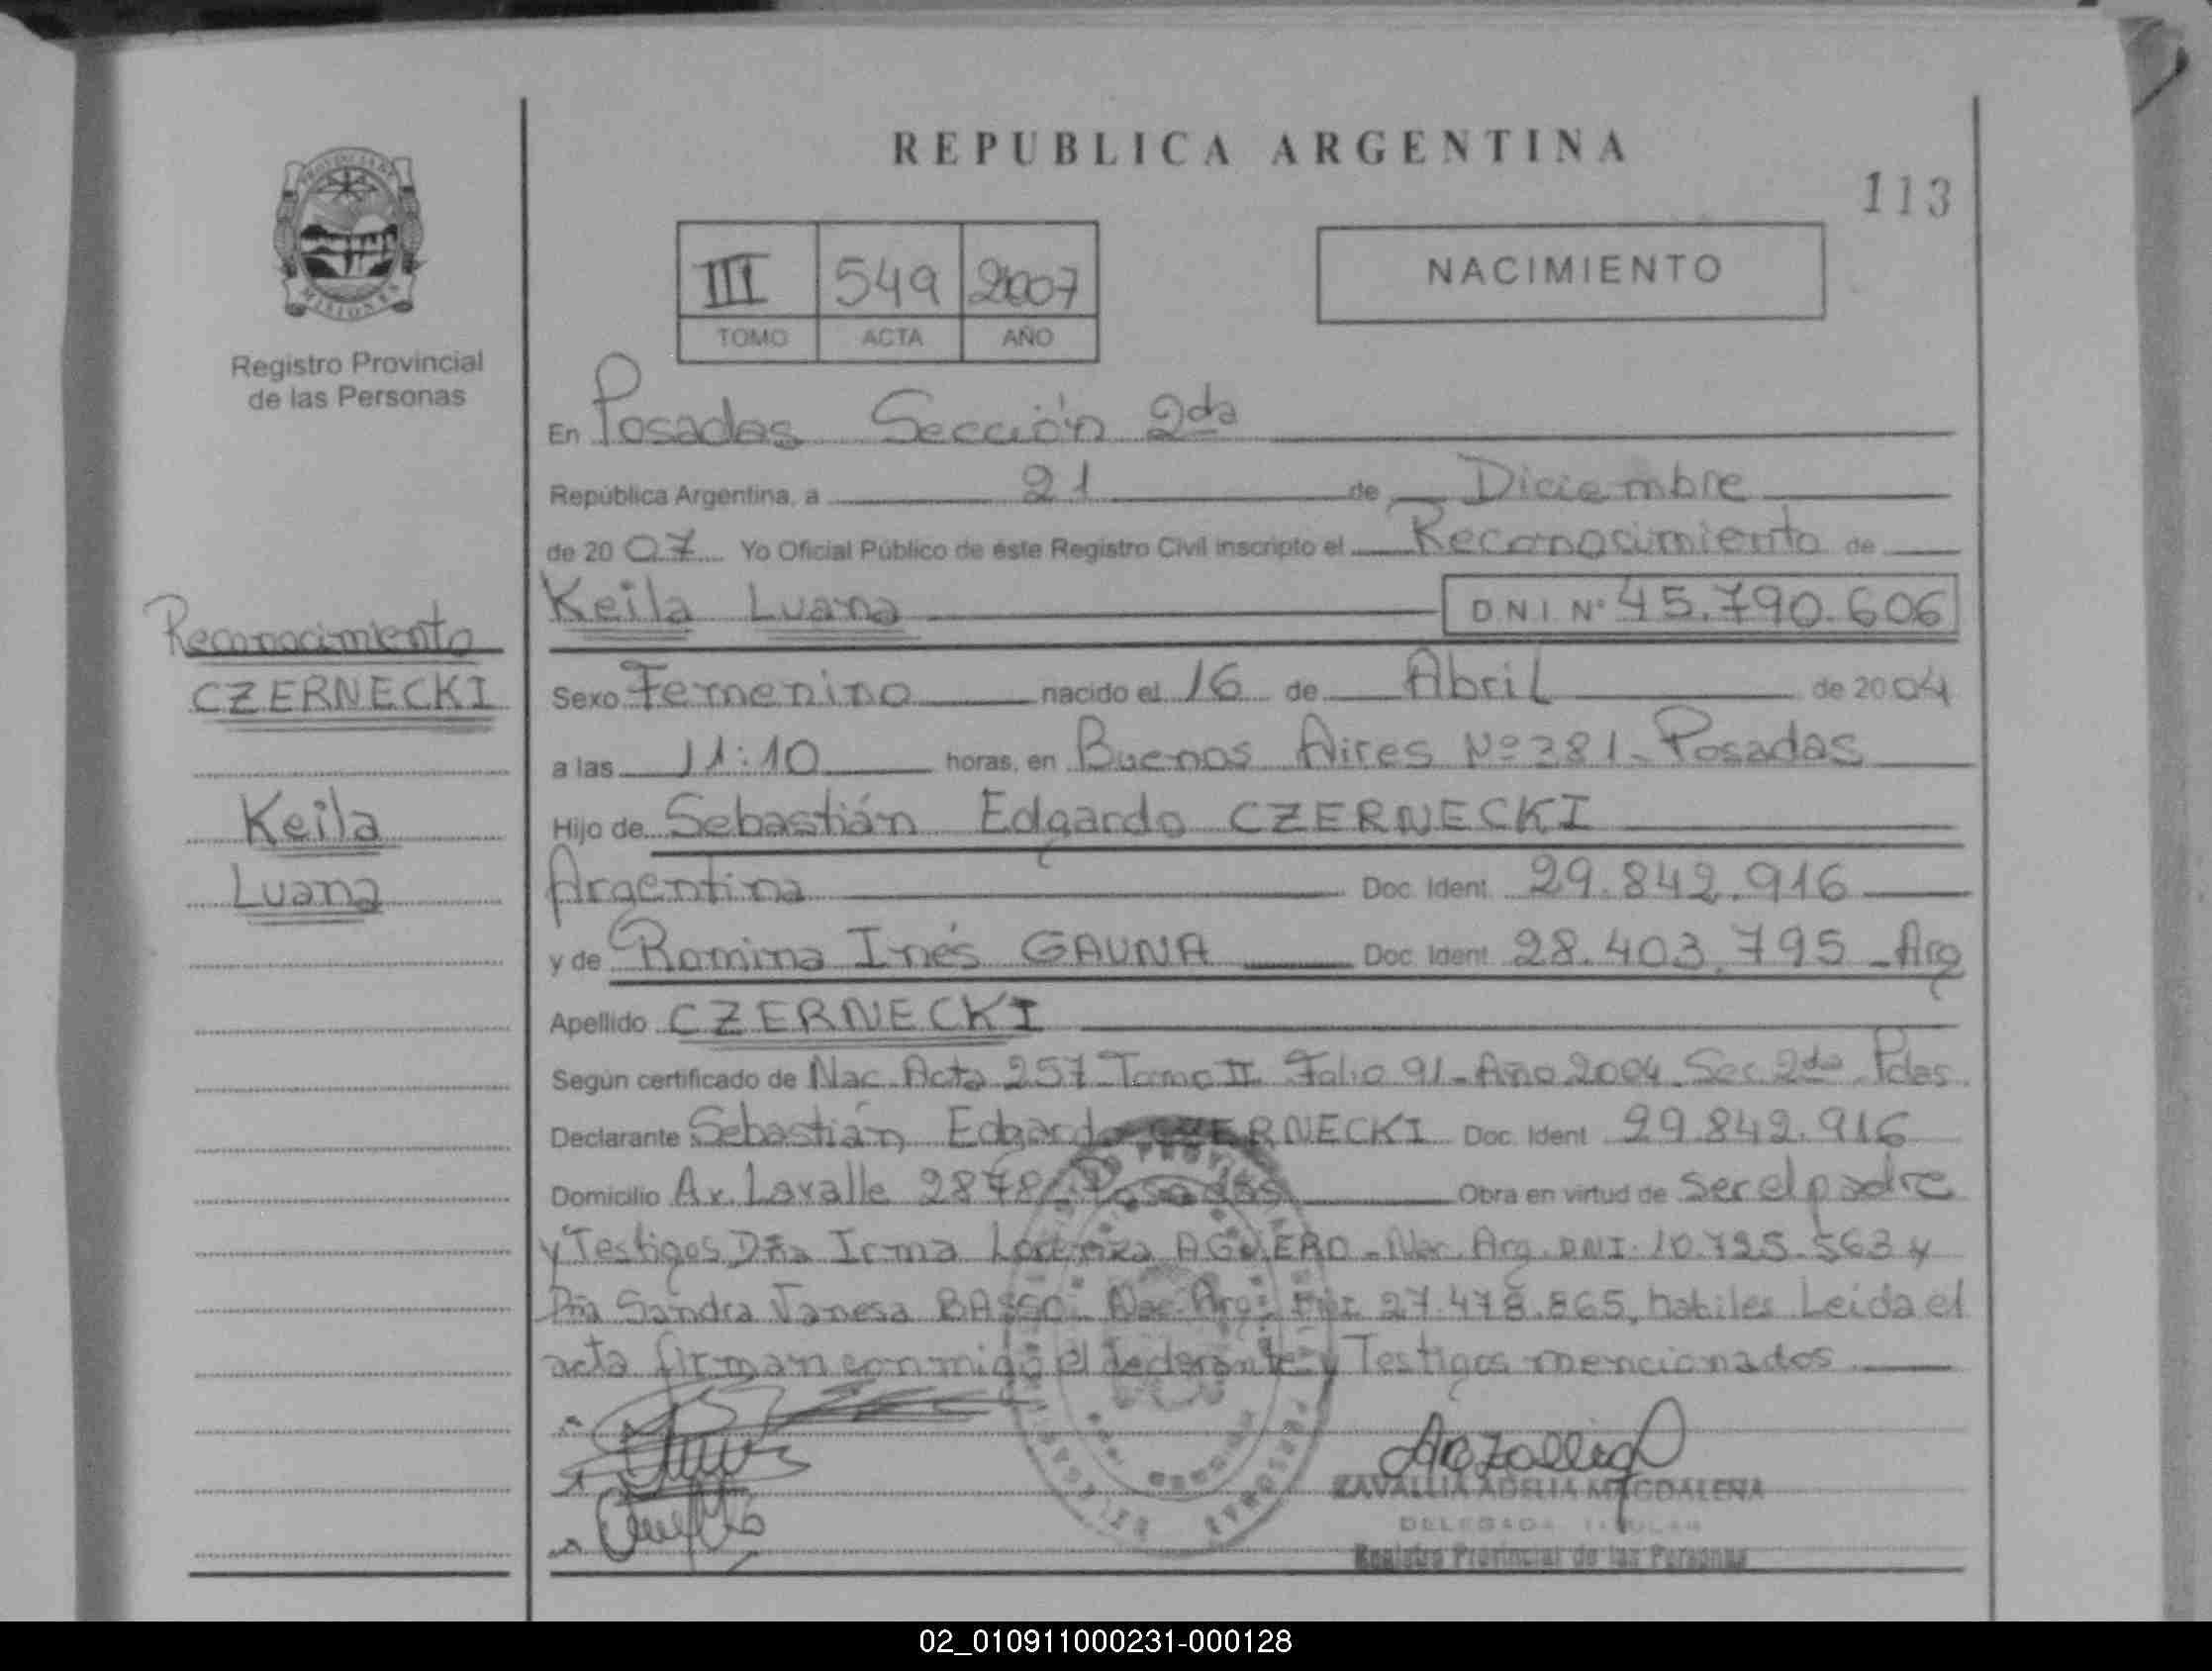 REPUBLICA ARGENTINA
113
III 549 2007
TOMO ACTA AÑO
NACIMIENTO
PROVINCIA DE
MISIONES
Registro Provincial
de las Personas
En Posadas Sección 2da
República Argentina, a 21 de Diciembre
de 20 07 Yo Oficial Público de éste Registro Civil inscripto el Reconocimiento de
Keila Luana DNI Nº 45.790.606
Reconocimiento
CZERNECKI
Keila
Luana
Sexo Femenino nacido el 16 de Abril de 20 04
a las 11:10 horas, en Buenos Aires Nº 381 - Posadas
Hijo de Sebastián Edgardo CZERNECKI
Argentina Doc. Ident. 29.842.916
y de Romina Inés GAUNA Doc. Ident. 28.403.795 - Arg
Apellido CZERNECKI
Según certificado de Nac. Acta 257 Tomo II Folio 91 - Año 2004 - Sec 2da Pdas.
Declarante Sebastián Edgardo CZERNECKI Doc. Ident 29.842.916
Domicilio Av. Lavalle 2878 - Posadas Obra en virtud de ser el padre
y Testigos Dña Irma AGUERO - Nac. Arg. DNI. 10.725.563 y
Dña Sandra Vanesa BASSO - Nac. Arg. DNI 27.478.865, habiles Leida el
acta firman conmigo el declarante y Testigos mencionados
ZAVALLIA ADELIA MAGDALENA
DELEGADA TITULAR
Registro Provincial de las Personas
02_010911000231-000128